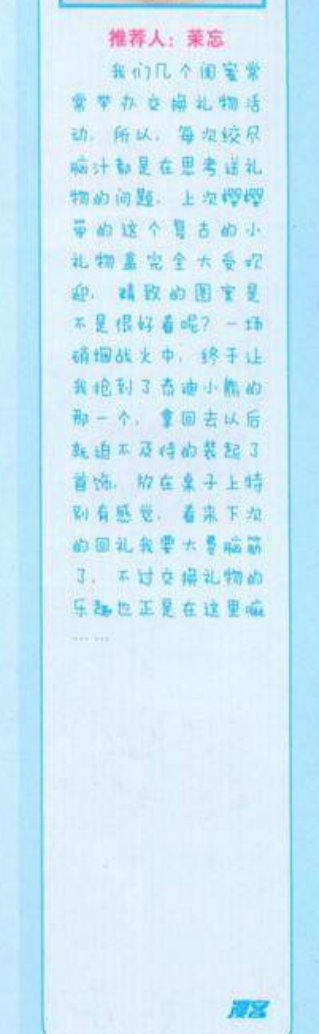 推荐人：莱忘
我们几个闺蜜常
常举办交换礼物活
动，所以，每次绞尽
脑汁都是在思考送礼
物的问题，上次樱樱
带的这个复古的小
礼物盒完全大受欢
迎，精致的图案是
不是很好看呢？一场
硝烟战火中，终于让
我抢到了泰迪小熊的
那一个，拿回去以后
就迫不及待的装起了
首饰，放在桌子上特
别有感觉，看来下次
的回礼我要大费脑筋
了，不过交换礼物的
乐趣也正是在这里嘛
……
漫客